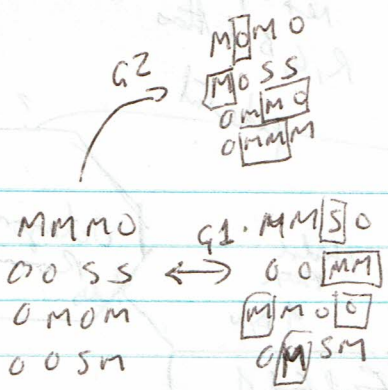 G2
M O M O
M O S S
O M M O
O M M M
M M M O
O O S S
O M O M
O O S M
G1. M M S O
O O M M
M M O O
O M S M